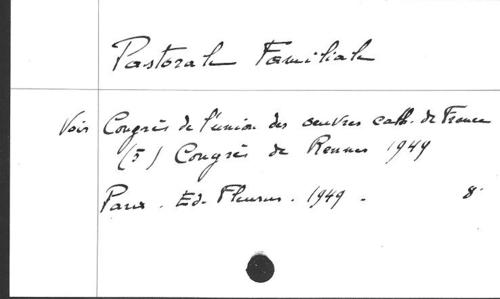 Pastorale Familiale
Voir Congrès de l'union des oeuvres cath. de France
(5) Congrès de Rennes 1949
Paris. Ed. Fleurus. 1949. 8°